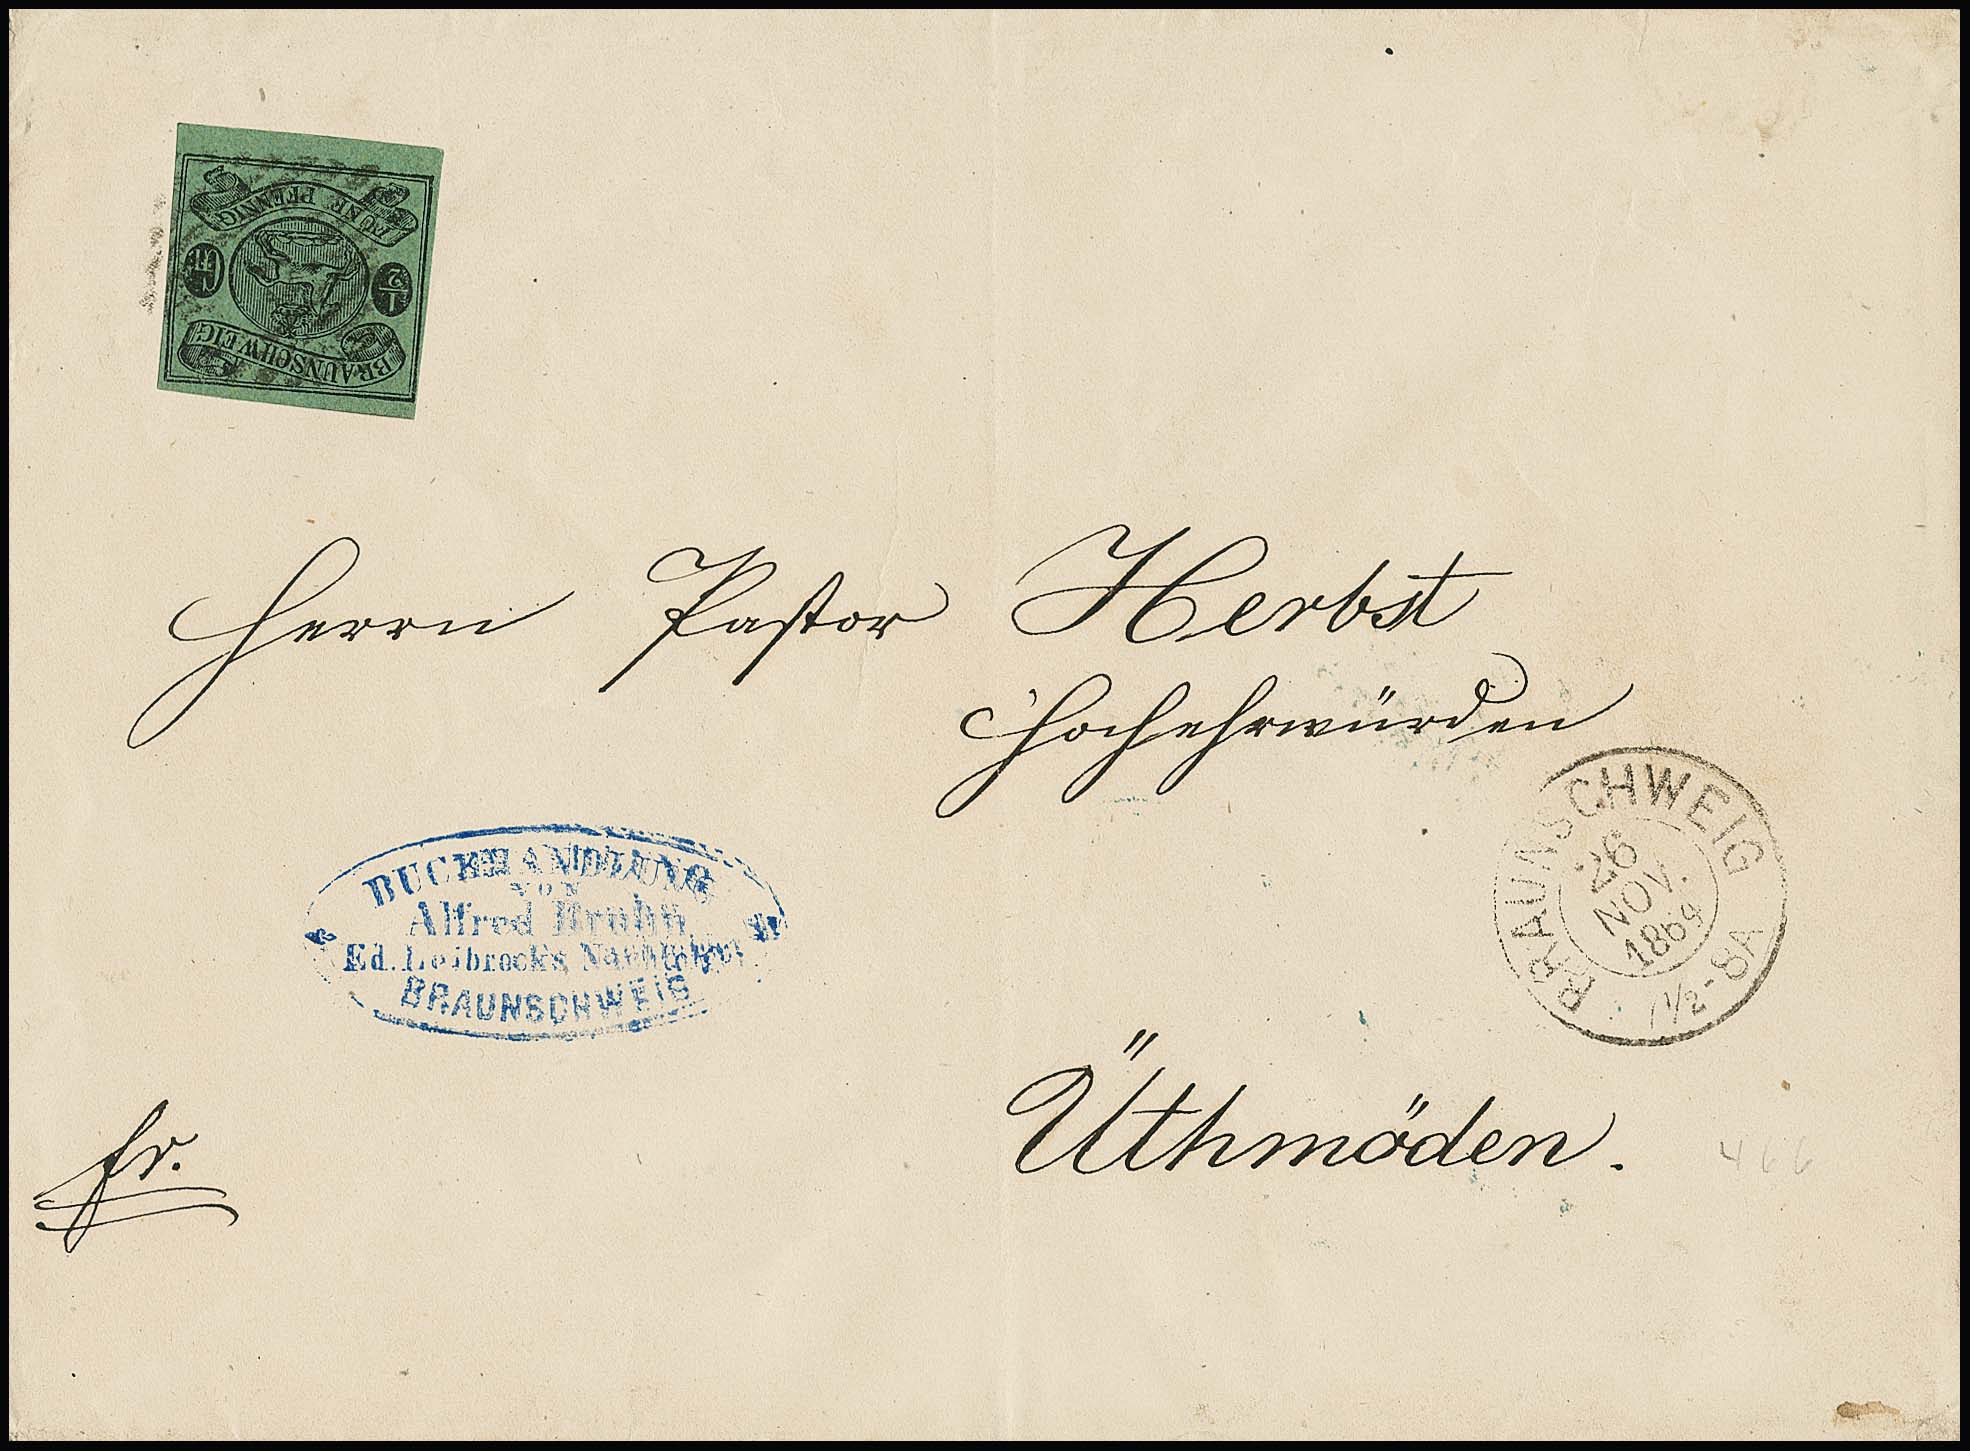 FÜNF PFENNIG
1/2 Gr
BRAUNSCHWEIG
Herrn Pastor Herbst
Hochehrwürden
BRAUNSCHWEIG
26
NOV.
1864
7 1/2-8A
BUCHHANDLUNG
VON
Alfred Bruhn
Ed. Leibrock's Nachfolger
BRAUNSCHWEIG
Üthmöden.
fr.
466